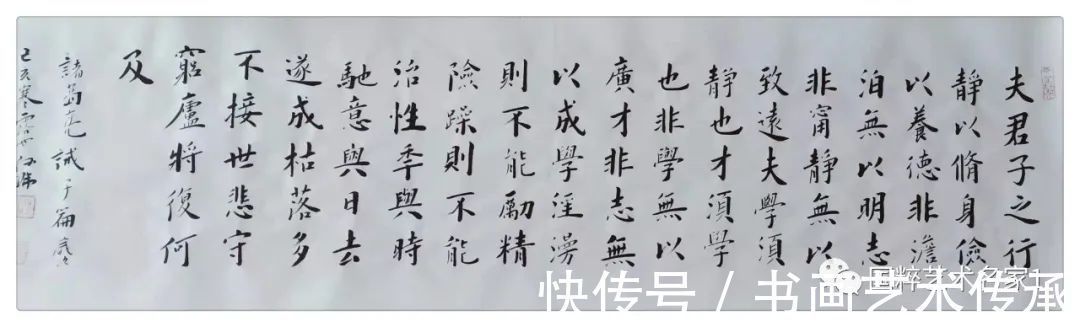 夫君子之行
静以脩身儉
以養德非澹
泊無以明志
非甯静無以
致遠夫學須
静也才須學
也非學無以
廣才非志無
以成學淫漫
則不能勵精
險躁則不能
治性年與時
馳意與日去
遂成枯落多
不接世悲守
窮廬將復何
及
諸葛亮誡子篇
己亥寒露
国粹艺术名家1
快传号 / 书画艺术传承